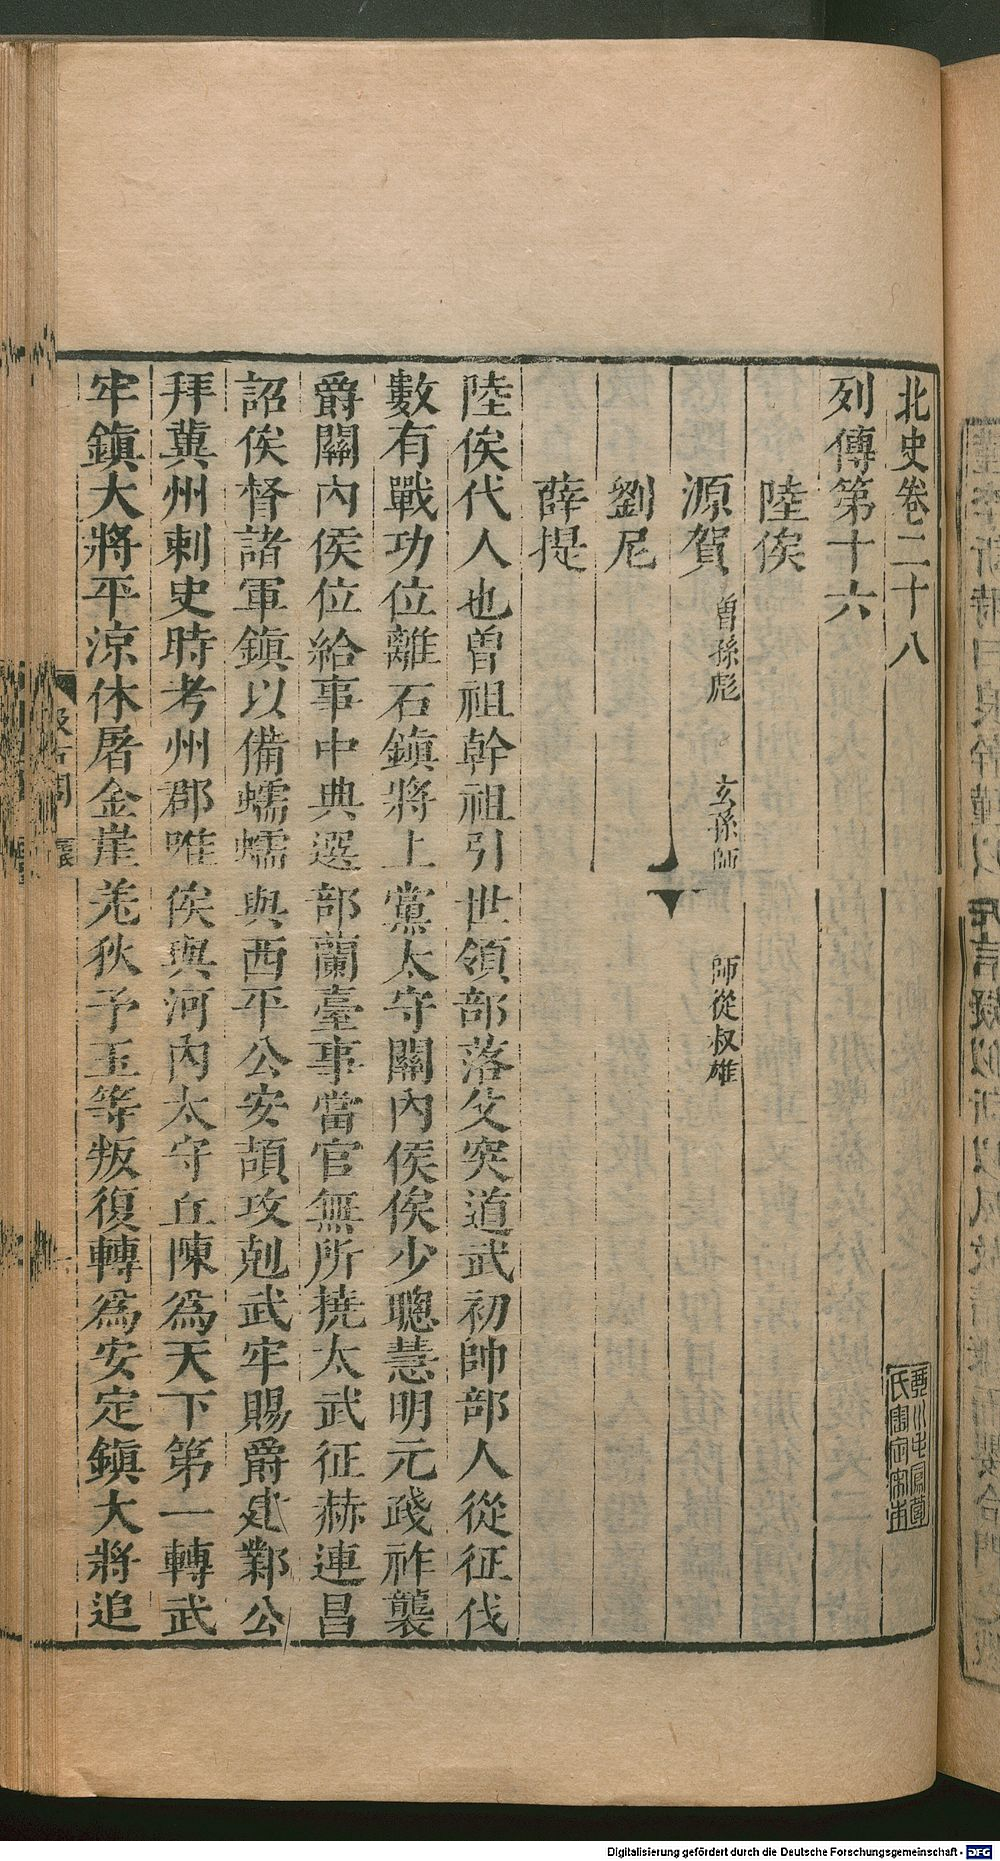 北史卷二十八
列傳第十六
陸俟
源賀 曽孫彪 玄孫師 師從叔雄
劉尼
薛提
陸俟代人也曽祖幹祖引世領部落父突道武初帥部人從征伐
數有戰功位離石鎮將上黨太守關內侯俟少聰慧明元踐祚襲
爵關內侯位給事中典選部蘭臺事當官無所撓太武征赫連昌
詔俟督諸軍鎮以備蠕蠕與西平公安頡攻剋武牢賜爵建鄴公
拜冀州刺史時考州郡唯俟與河內太守丘陳爲天下第一轉武
牢鎮大將平涼休屠金崖羌狄予玉等叛復轉爲安定鎮大將追
Digitalisierung gefördert durch die Deutsche Forschungsgemeinschaft - DFG